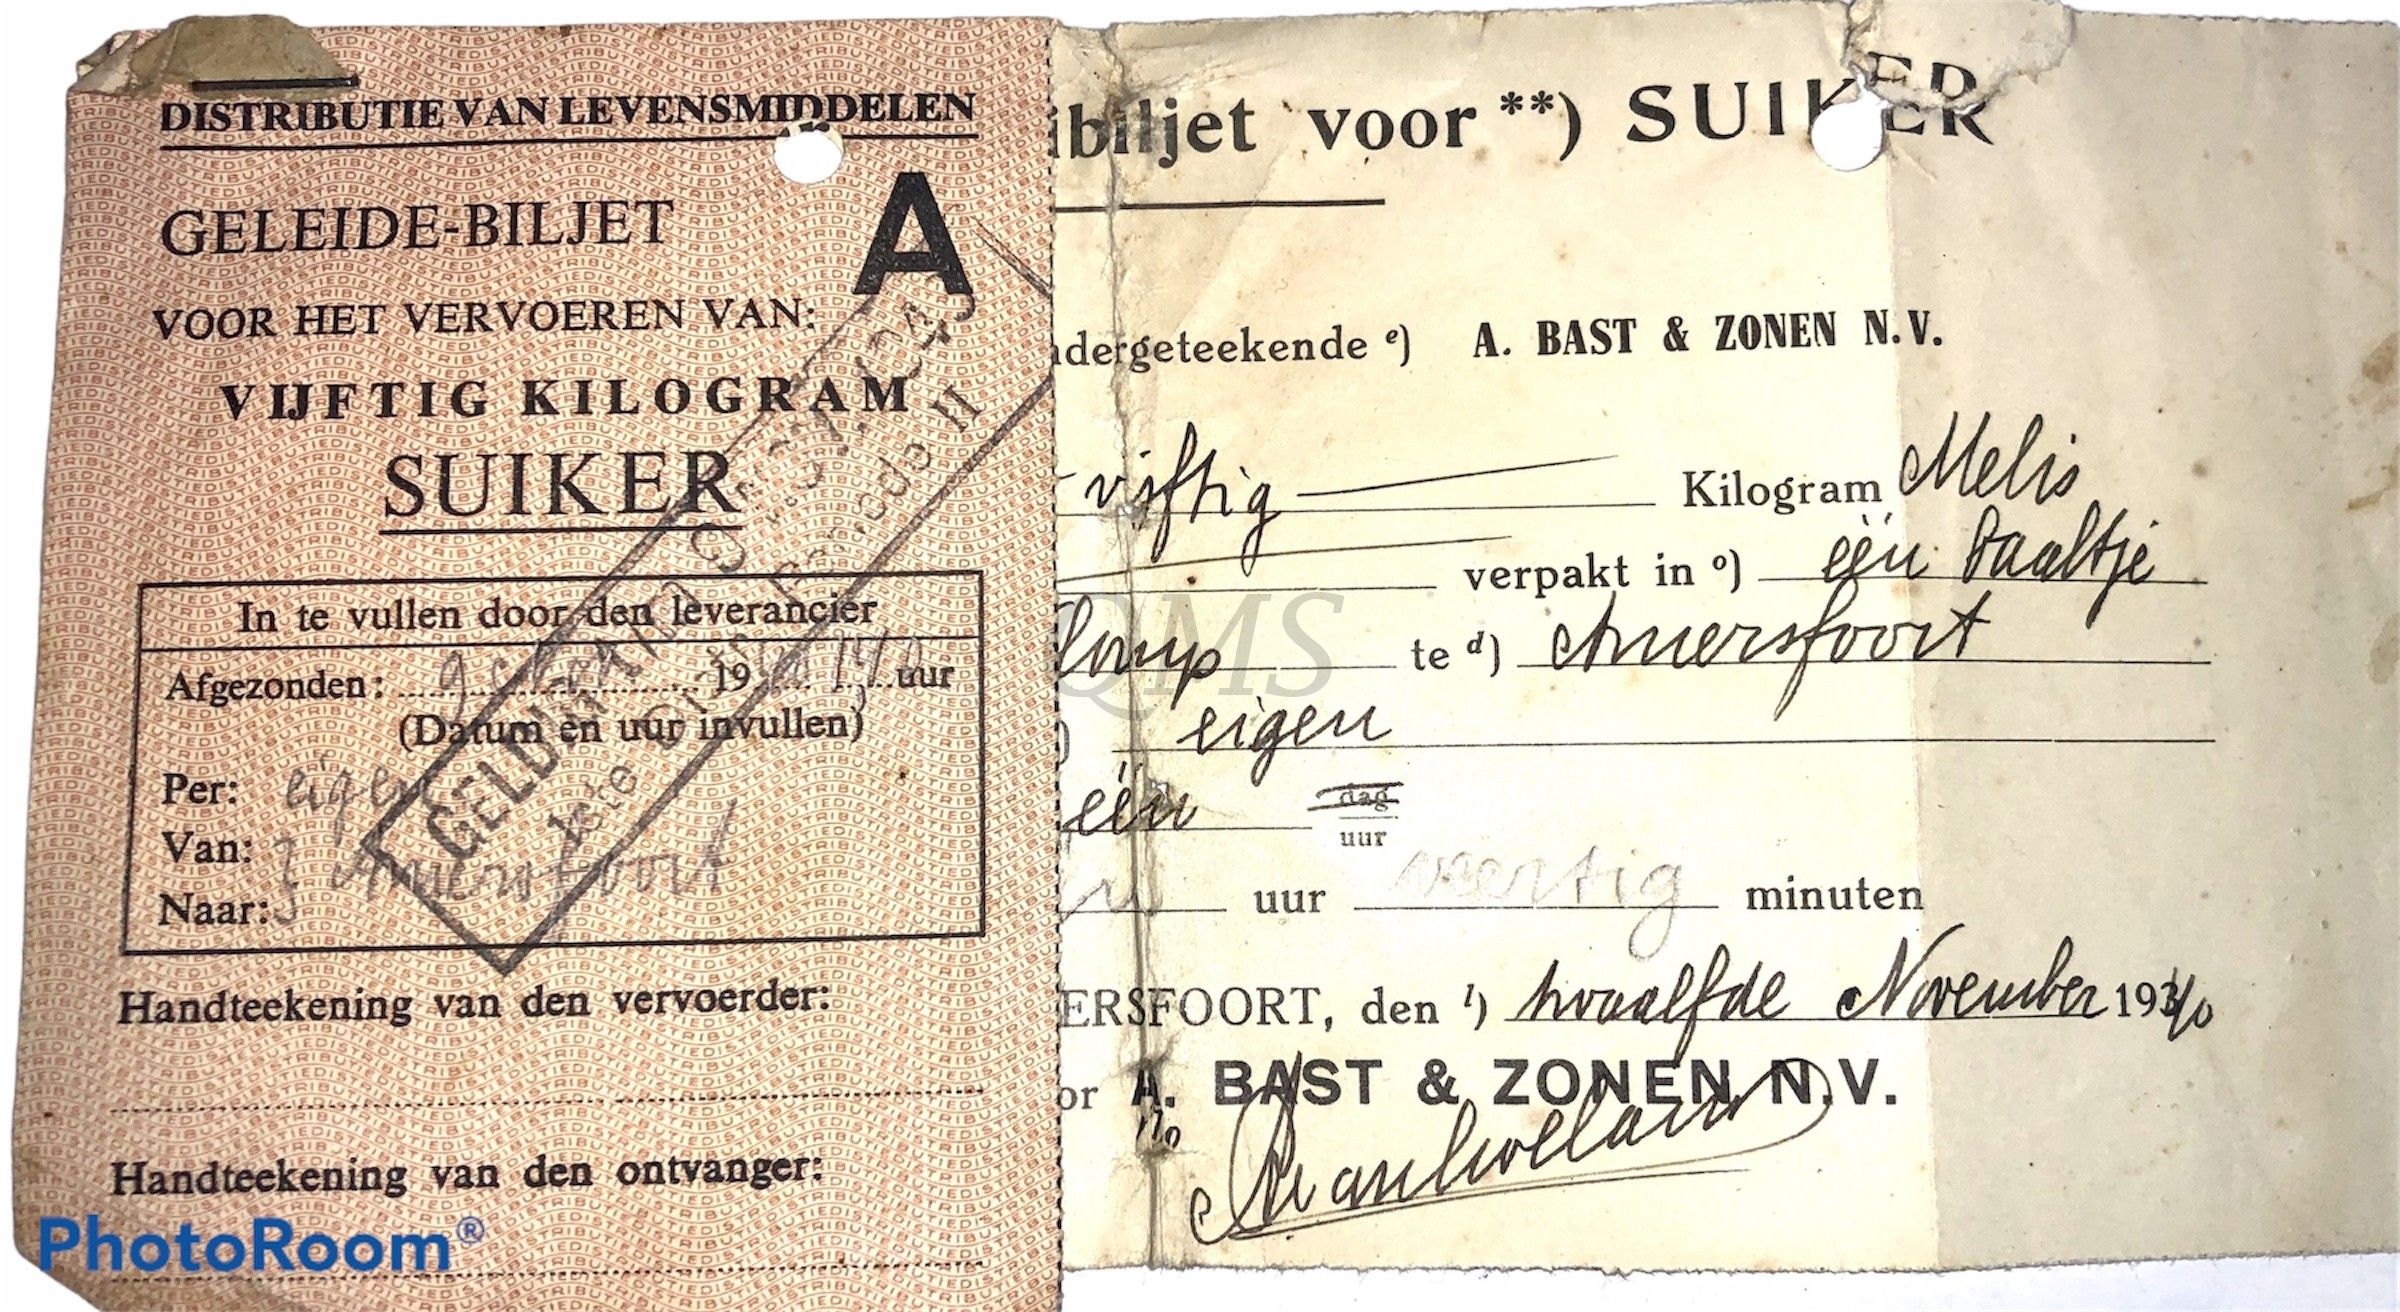 DISTRIBUTIE VAN LEVENSMIDDELEN
GELEIDE-BILJET
A
VOOR HET VERVOEREN VAN:
VIJFTIG KILOGRAM
SUIKER
In te vullen door den leverancier
Afgezonden: 19 uur
(Datum en uur invullen)
Per: eigen
Van:
Naar: Amersfoort
GELDIG
1ste Periode II
Handteekening van den vervoerder:
Handteekening van den ontvanger:
PhotoRoom®
ibiljet voor **) SUIKER
ndergeteekende e) A. BAST & ZONEN N.V.
vijftig Kilogram Melis
verpakt in o) één baaltje
te d) Amersfoort
QMS
) eigen
één dag
uur
uur veertig minuten
ERSFOORT, den l) twaalfde November 193/40
or A. BAST & ZONEN N.V.